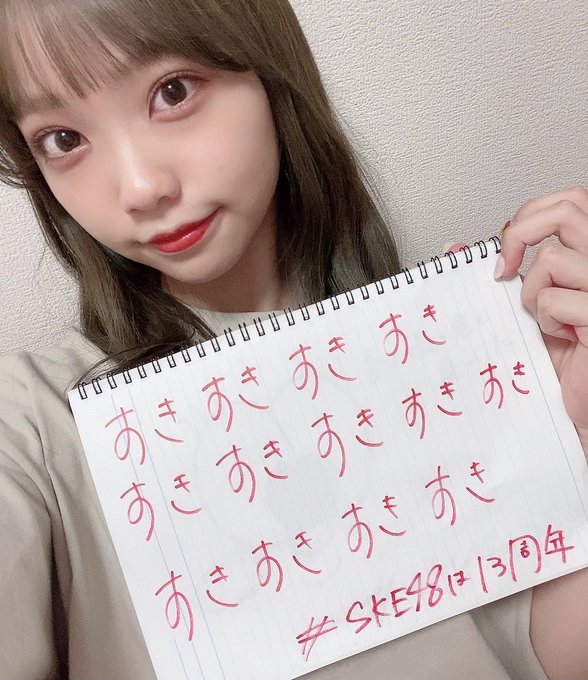 すき すき すき すき
すき すき すき すき すき
すき すき すき すき
#SKE48は13周年